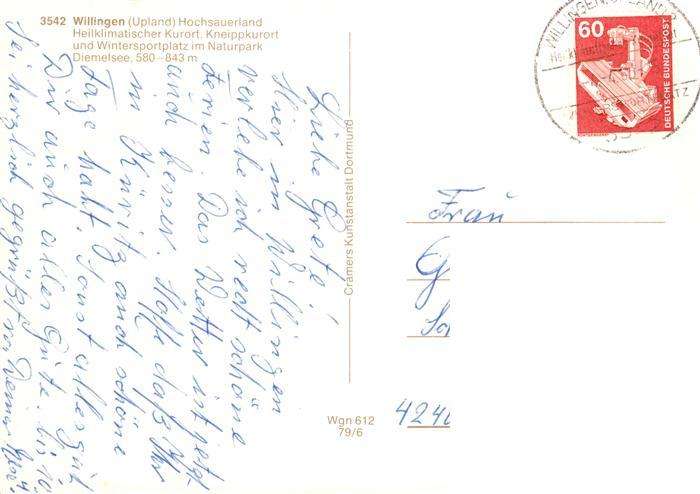 3542 Willingen (Upland) Hochsauerland
Heilklimatischer Kurort, Kneippkurort
und Wintersportplatz im Naturpark
Diemelsee, 580–843 m
Liebe Grete!
Hier in Willingen
verlebe ich recht schöne
Ferien. Das Wetter ist jetzt
auch besser. Hoffe daß Ihr
in auch schöne
Tage habt. Sonst alles gut
Dir auch alles Gute. bis
Sei herzlich gegrüßt von Deiner
Cramers Kunstanstalt Dortmund
Wgn 612
79/6
WILLINGEN, UPLAND
60
DEUTSCHE BUNDESPOST
Frau
G
424